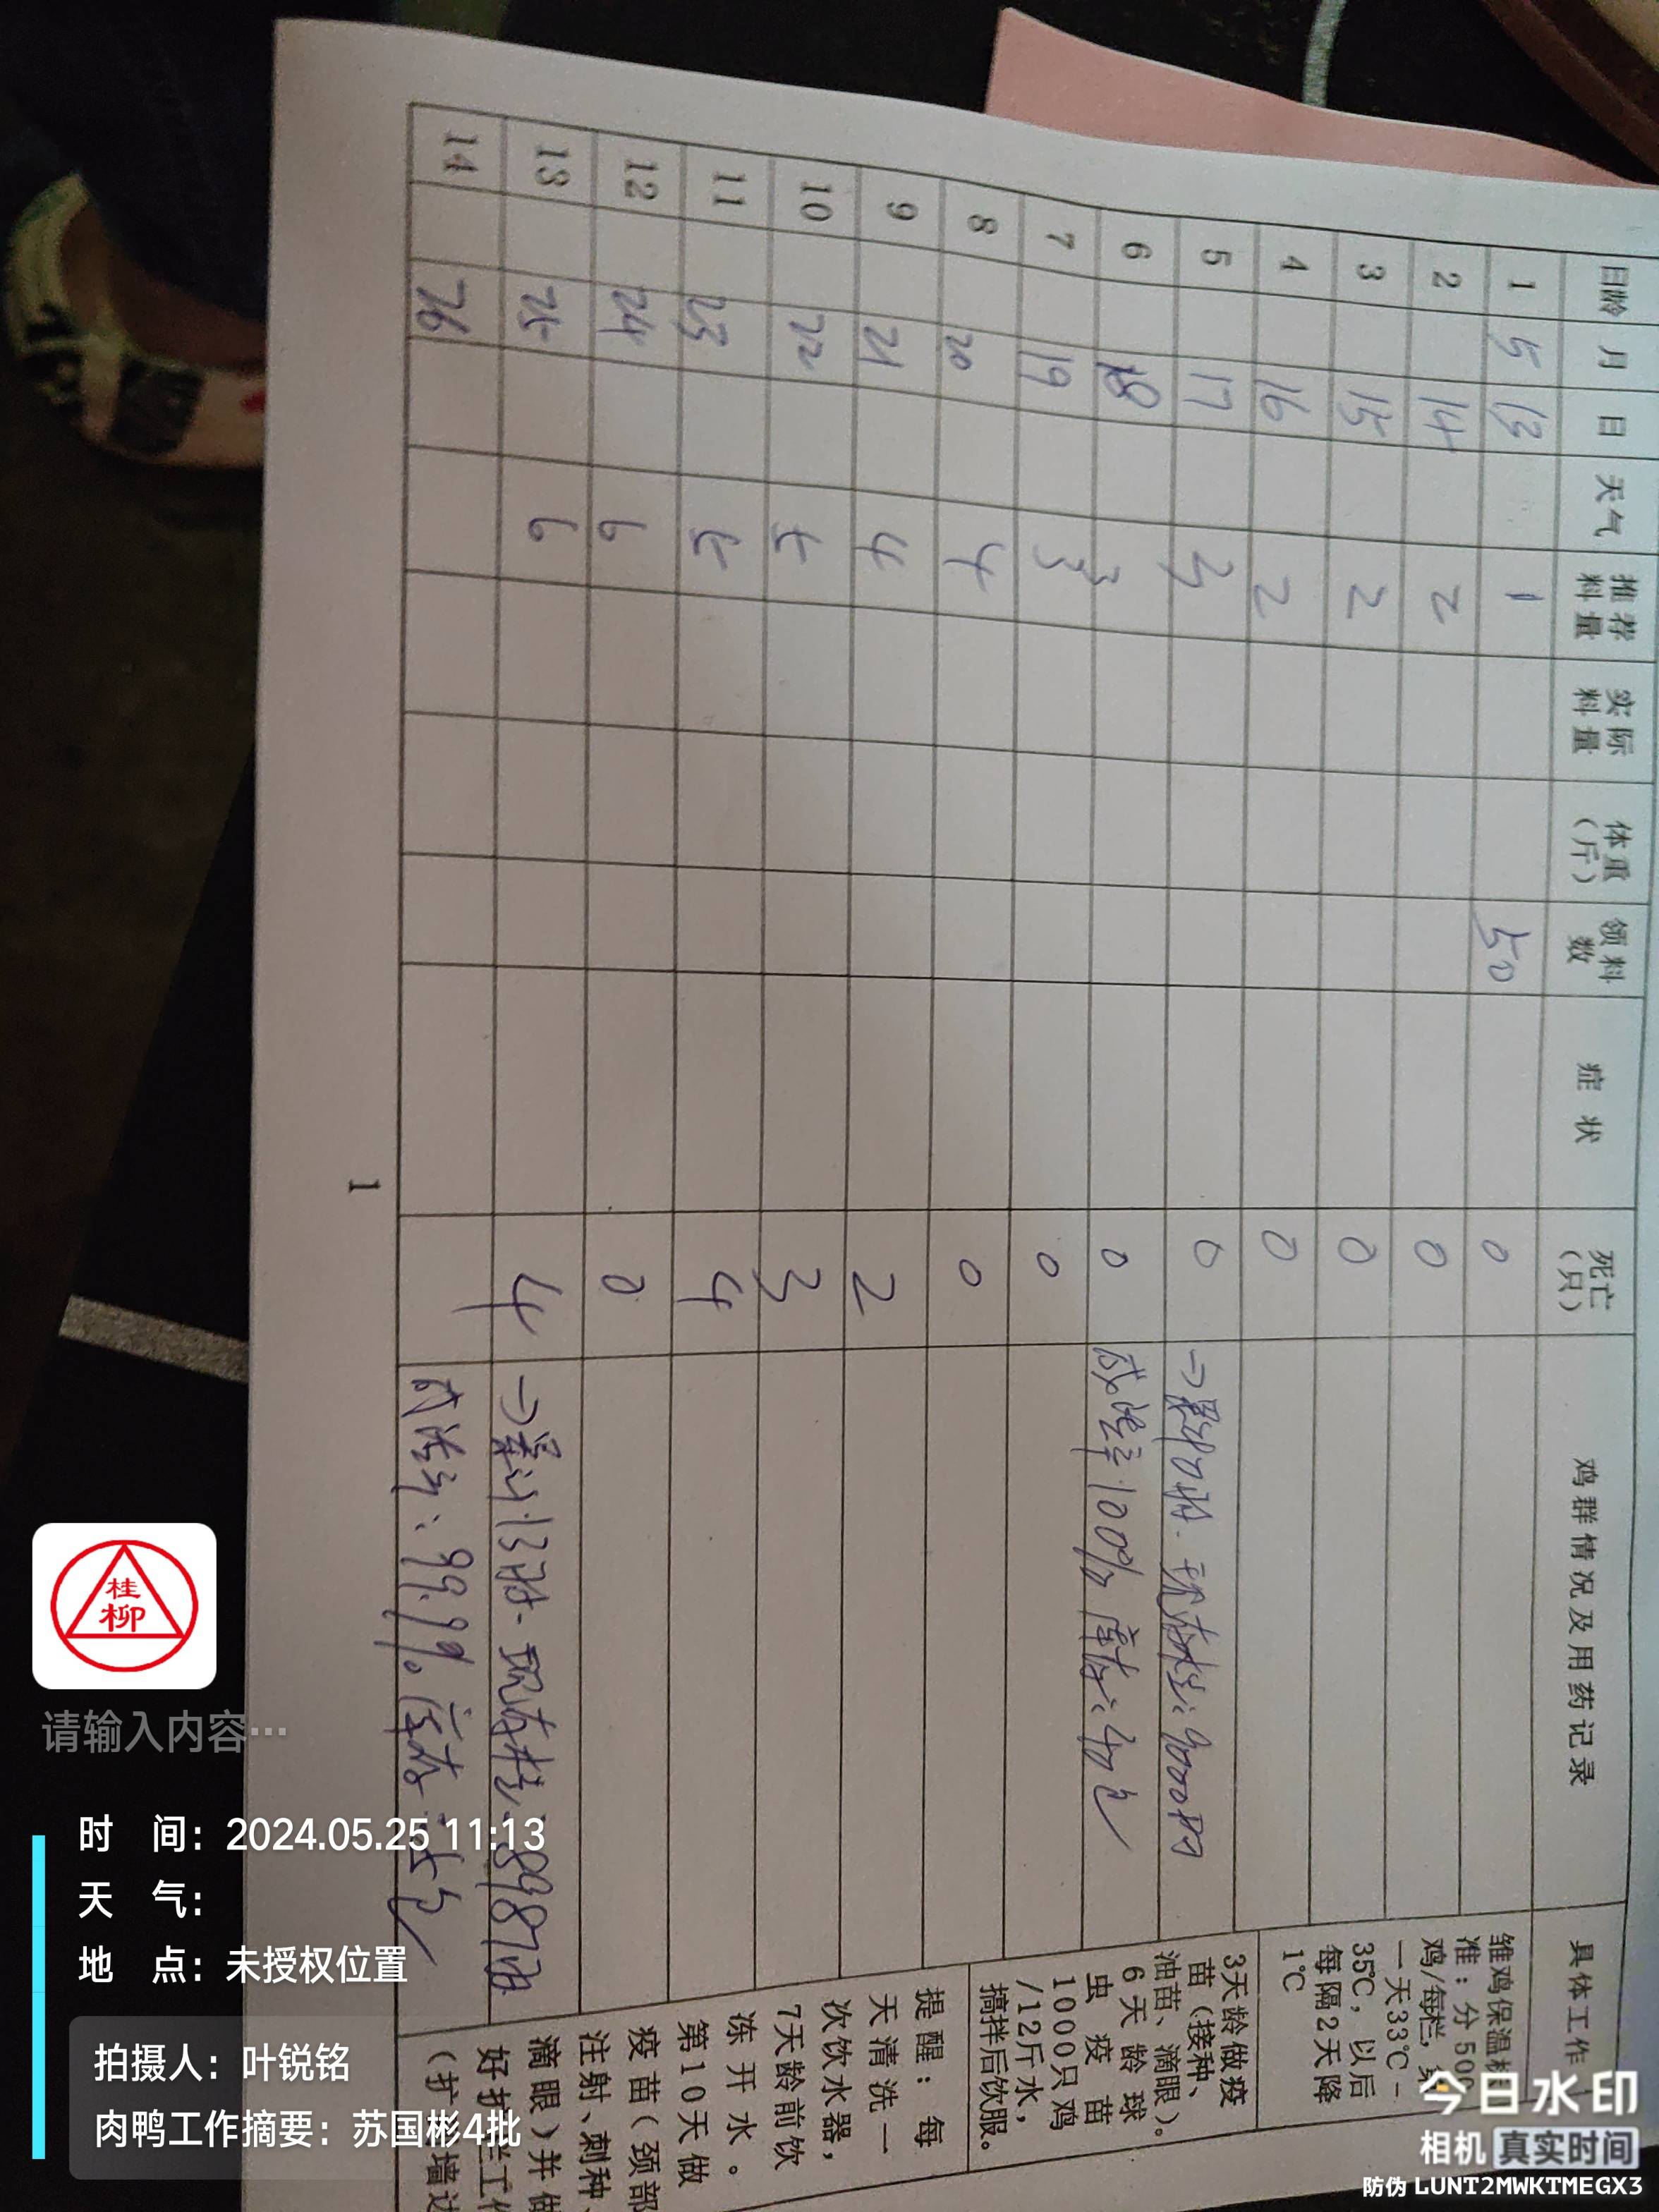 日龄 月 日 天气 推荐料量 实际料量 体重（斤） 领料数 症状 死亡（只） 鸡群情况及用药记录 具体工作
1 5 13 1 50 0
2 14 2 0
3 15 2 0
4 16 2 0
5 17 3 0 0
6 18 3 0 成活率100%
7 19 3 0
8 20 4 0
9 21 4 2
10 22 5 3
11 23 5 4
12 24 6 0
13 25 6 4
14 26 99.9%
雏鸡保温标
准：分500
鸡/每栏，第
一天33℃-
35℃，以后
每隔2天降
1℃
3天龄做疫
苗（接种、
油苗、滴眼）。
6天龄球
虫疫苗
1000只鸡
/12斤水，
搞拌后饮服。
提醒：每
天清洗一
次饮水器，
7天龄前饮
冻开水。
第10天做
疫苗（颈部
注射、刺种、
滴眼）并做
1
桂
柳
请输入内容…
时 间：2024.05.25 11:13
天 气：
地 点：未授权位置
拍摄人：叶锐铭
肉鸭工作摘要：苏国彬4批
今日水印
相机 真实时间
防伪 LUNT2MWKTMEGX3